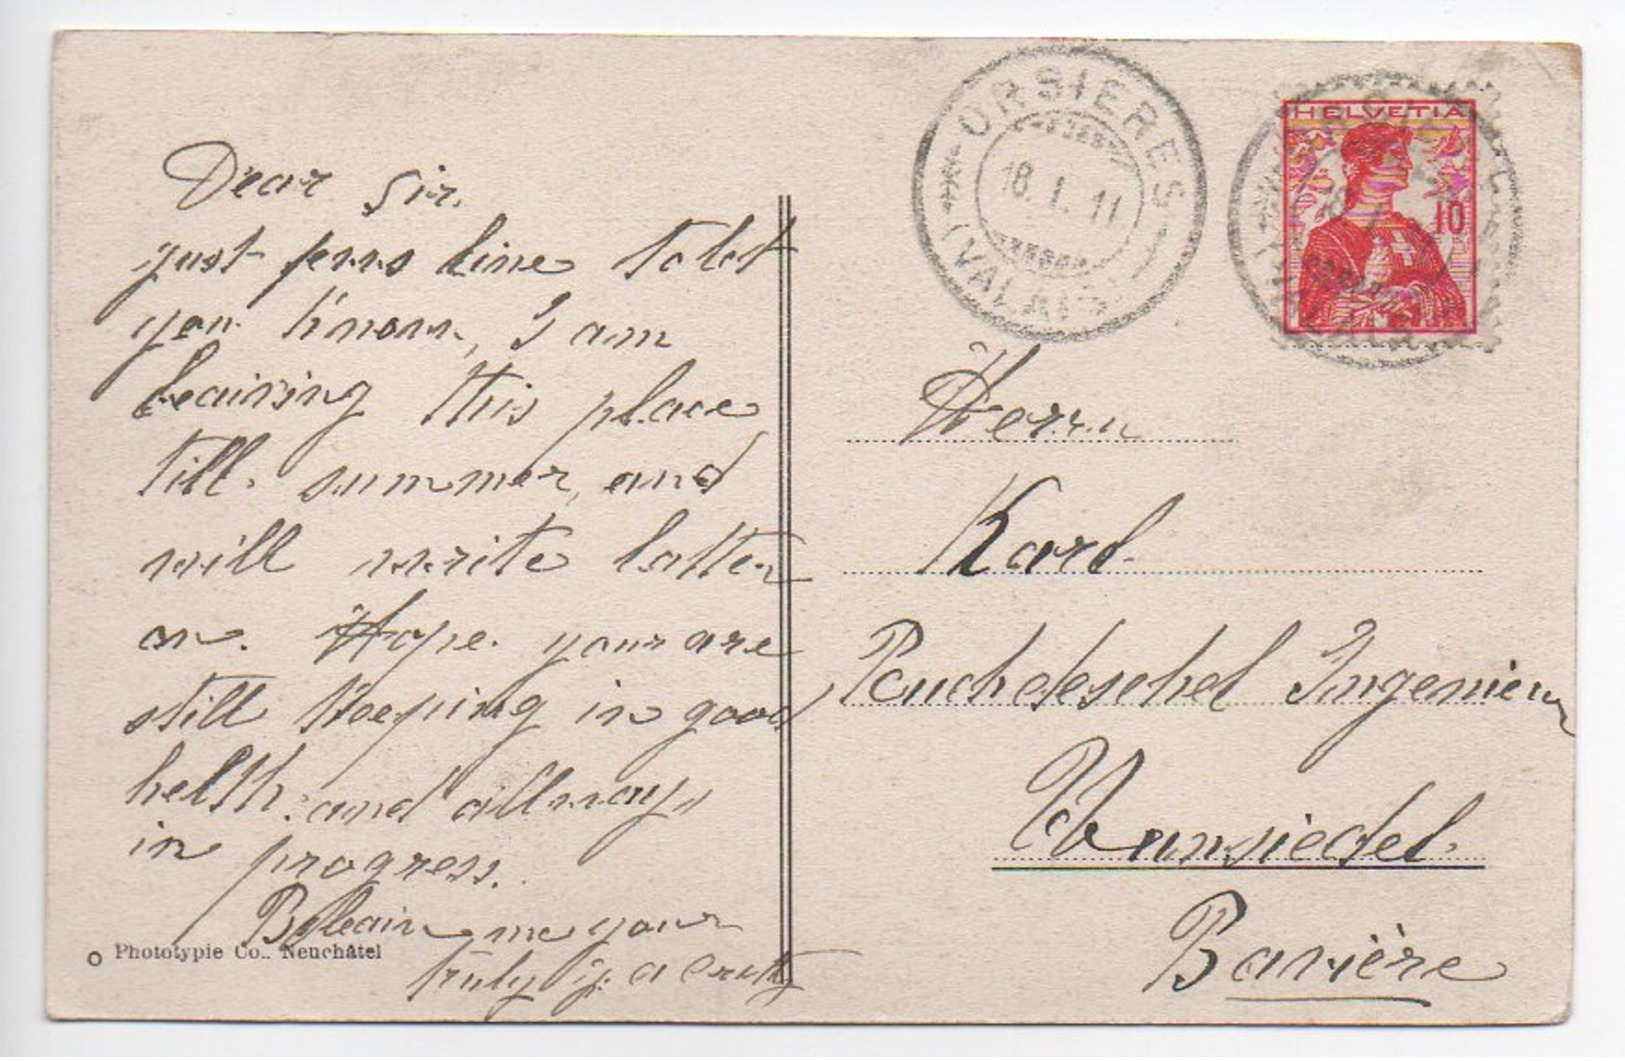 Dear Sir.
just fews line to let
you know, I am
leaiving this place
till. summer, and
will write latter
on. Hope. your are
still keeping in good
helth. and allways
in progress.
me your
truly
Phototypie Co.. Neuchâtel
ORSIERES
18. I. 11
(VALAIS)
HELVETIA
10
Herrn
Karl
Ingenieur
Wunsiedel.
Bavière